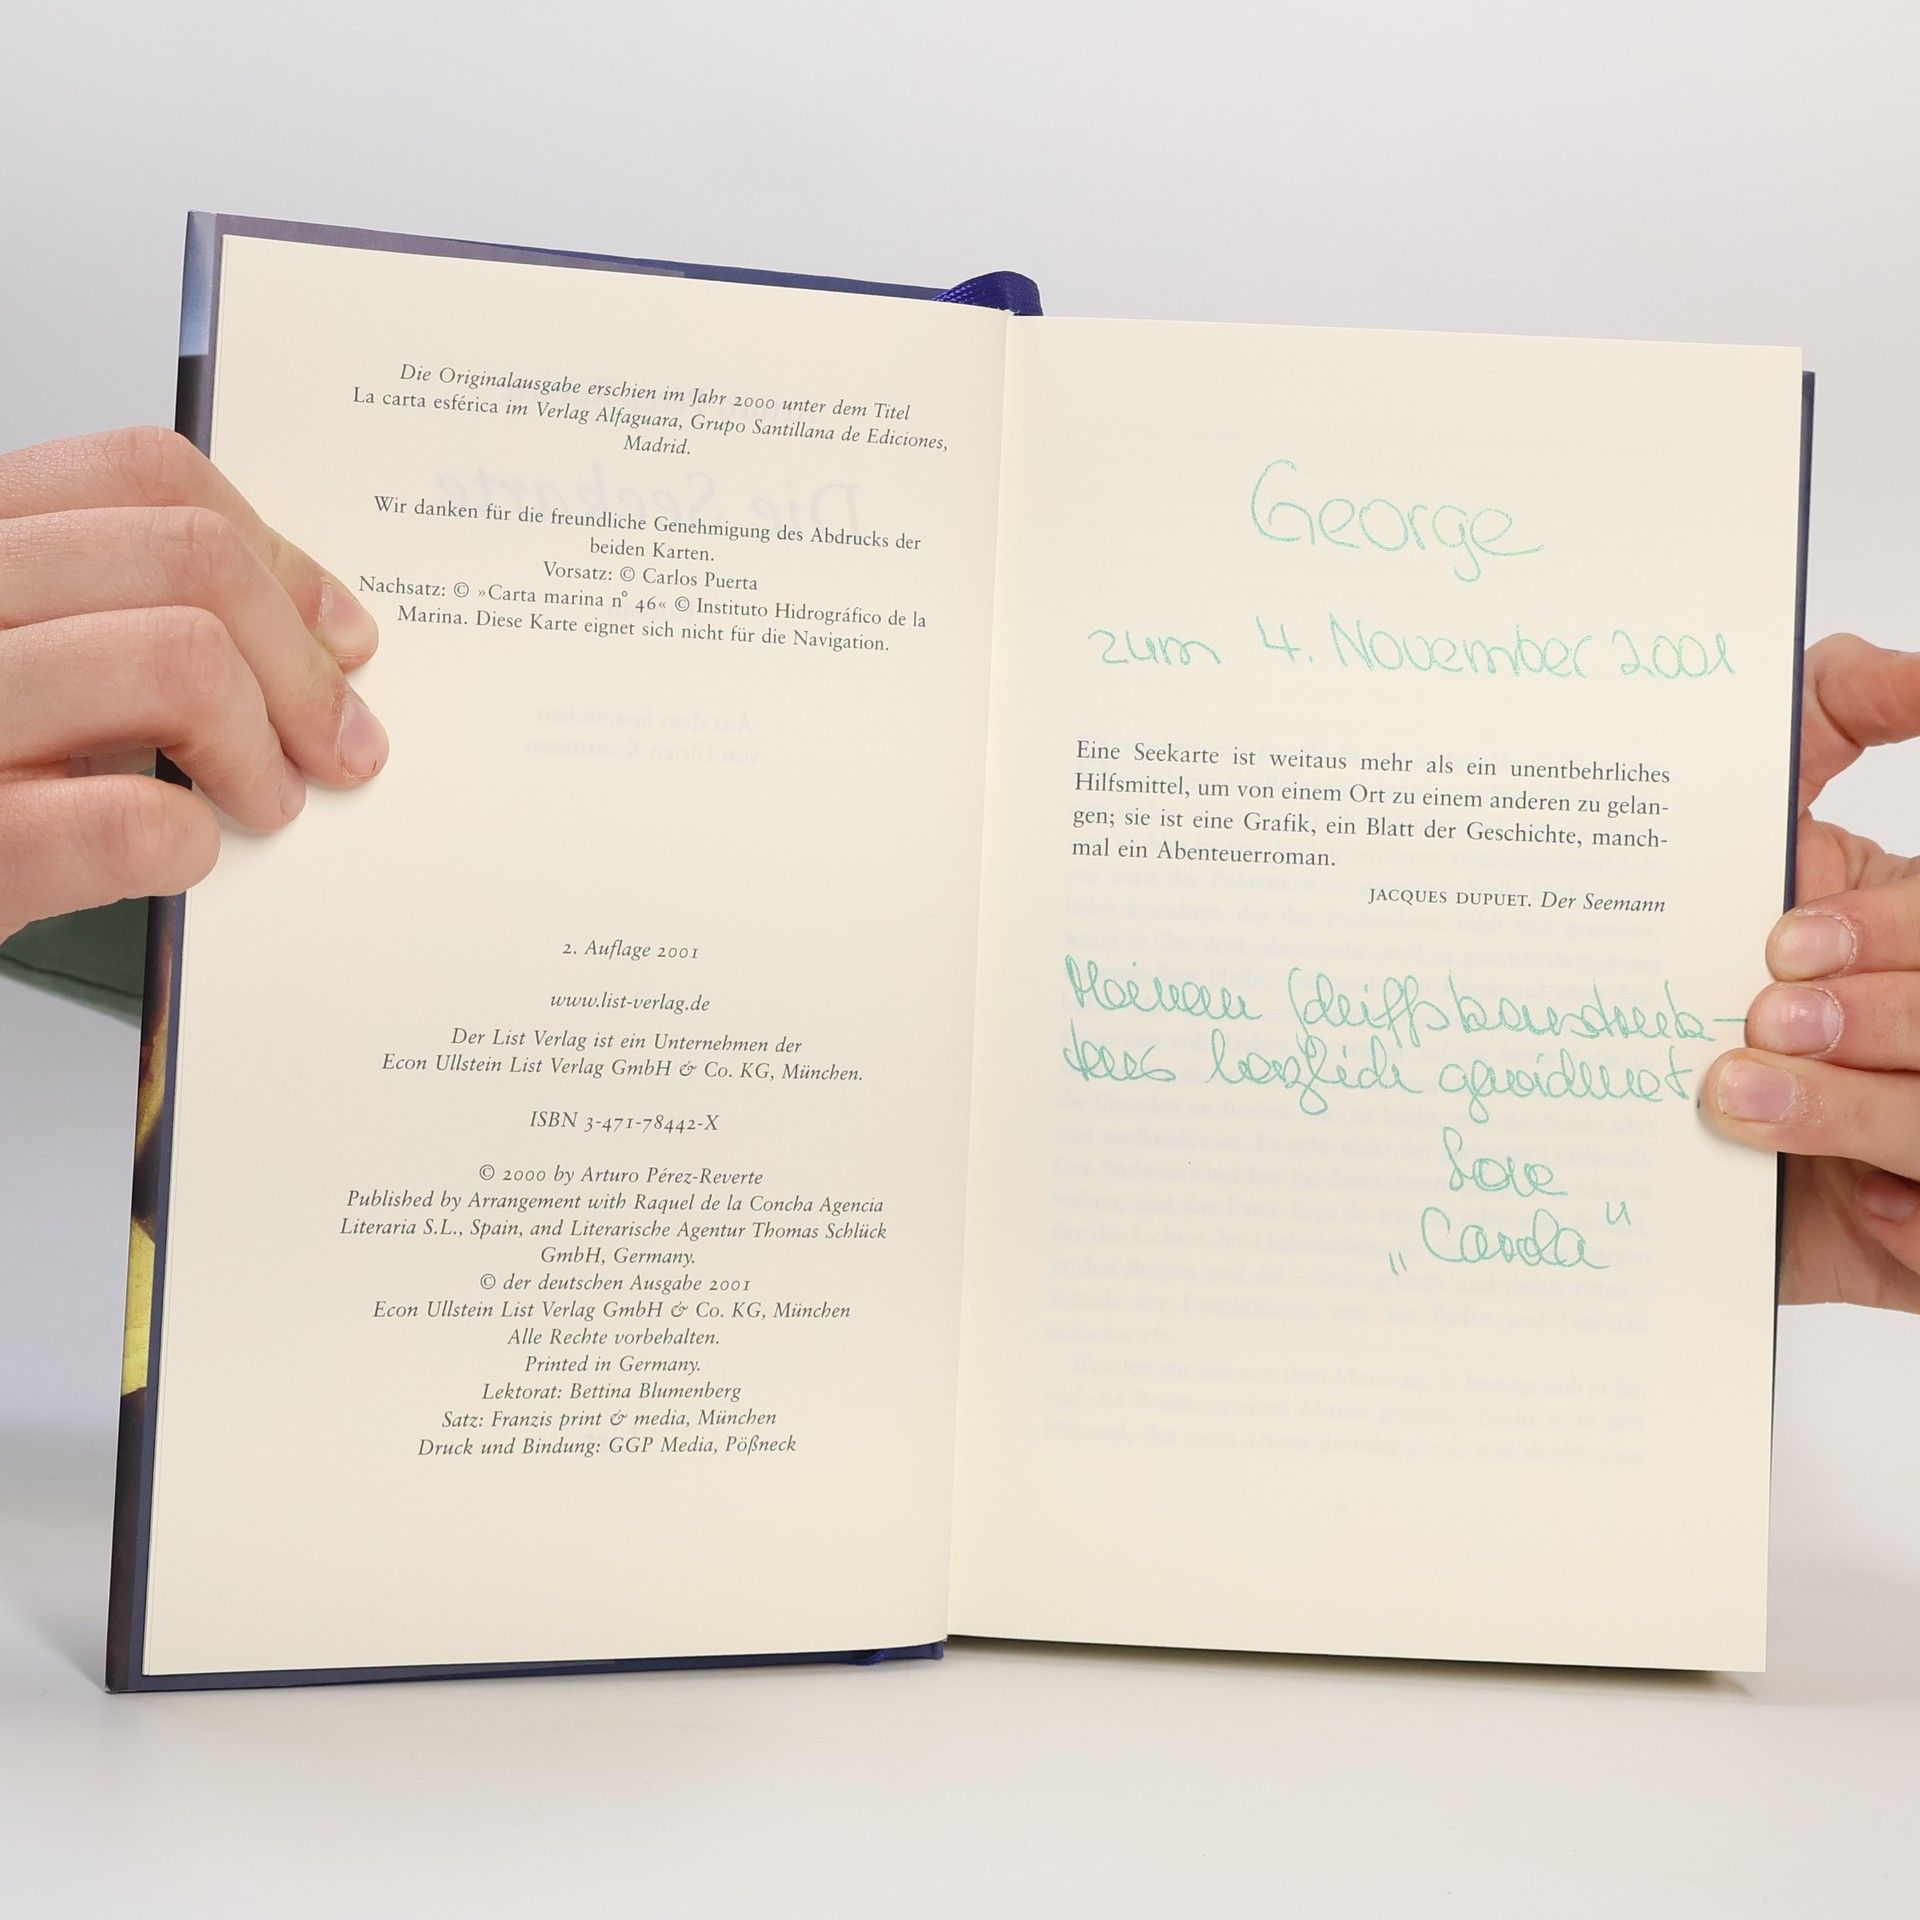 Die Originalausgabe erschien im Jahr 2000 unter dem Titel
La carta esférica im Verlag Alfaguara, Grupo Santillana de Ediciones,
Madrid.
Wir danken für die freundliche Genehmigung des Abdrucks der
beiden Karten.
Vorsatz: © Carlos Puerta
Nachsatz: © »Carta marina n° 46« © Instituto Hidrográfico de la
Marina. Diese Karte eignet sich nicht für die Navigation.
2. Auflage 2001
www.list-verlag.de
Der List Verlag ist ein Unternehmen der
Econ Ullstein List Verlag GmbH & Co. KG, München.
ISBN 3-471-78442-X
© 2000 by Arturo Pérez-Reverte
Published by Arrangement with Raquel de la Concha Agencia
Literaria S.L., Spain, and Literarische Agentur Thomas Schlück
GmbH, Germany.
© der deutschen Ausgabe 2001
Econ Ullstein List Verlag GmbH & Co. KG, München
Alle Rechte vorbehalten.
Printed in Germany.
Lektorat: Bettina Blumenberg
Satz: Franzis print & media, München
Druck und Bindung: GGP Media, Pößneck
George
zum 4. November 2001
Eine Seekarte ist weitaus mehr als ein unentbehrliches
Hilfsmittel, um von einem Ort zu einem anderen zu gelan-
gen; sie ist eine Grafik, ein Blatt der Geschichte, manch-
mal ein Abenteuerroman.
JACQUES DUPUET. Der Seemann
Meinem
herzlich gewidmet.
Love